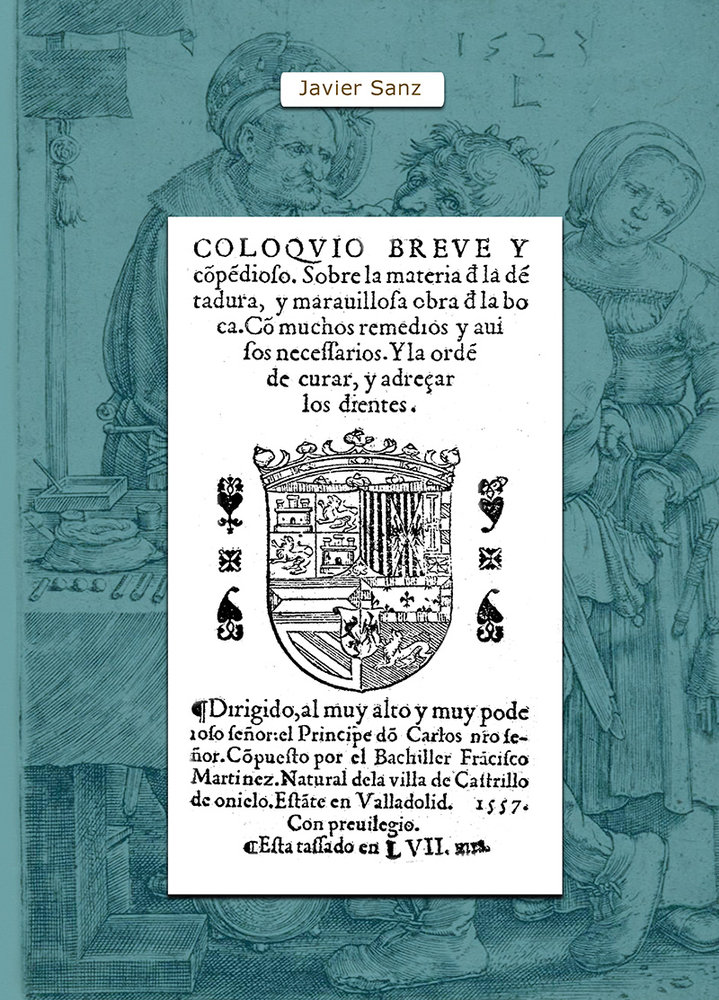 1523
L
Javier Sanz
COLOQVIO BREVE Y
cõpẽdioſo. Sobre la materia đ la dẽ
tadura, y marauilloſa obra đ la bo
ca. Cõ muchos remedios y aui
ſos neceſſarios. Y la ordẽ
de curar, y adreçar
los dientes.
¶Dirigido, al muy alto y muy pode
roſo ſeñor: el Principe dõ Carlos nr̃o ſe-
ñor. Cõpueſto por el Bachiller Frãciſco
Martinez. Natural dela villa de Caſtrillo
de onielo. Eſtãte en Valladolid. 1557.
Con preuilegio.
¶Eſta taſſado en LVII.